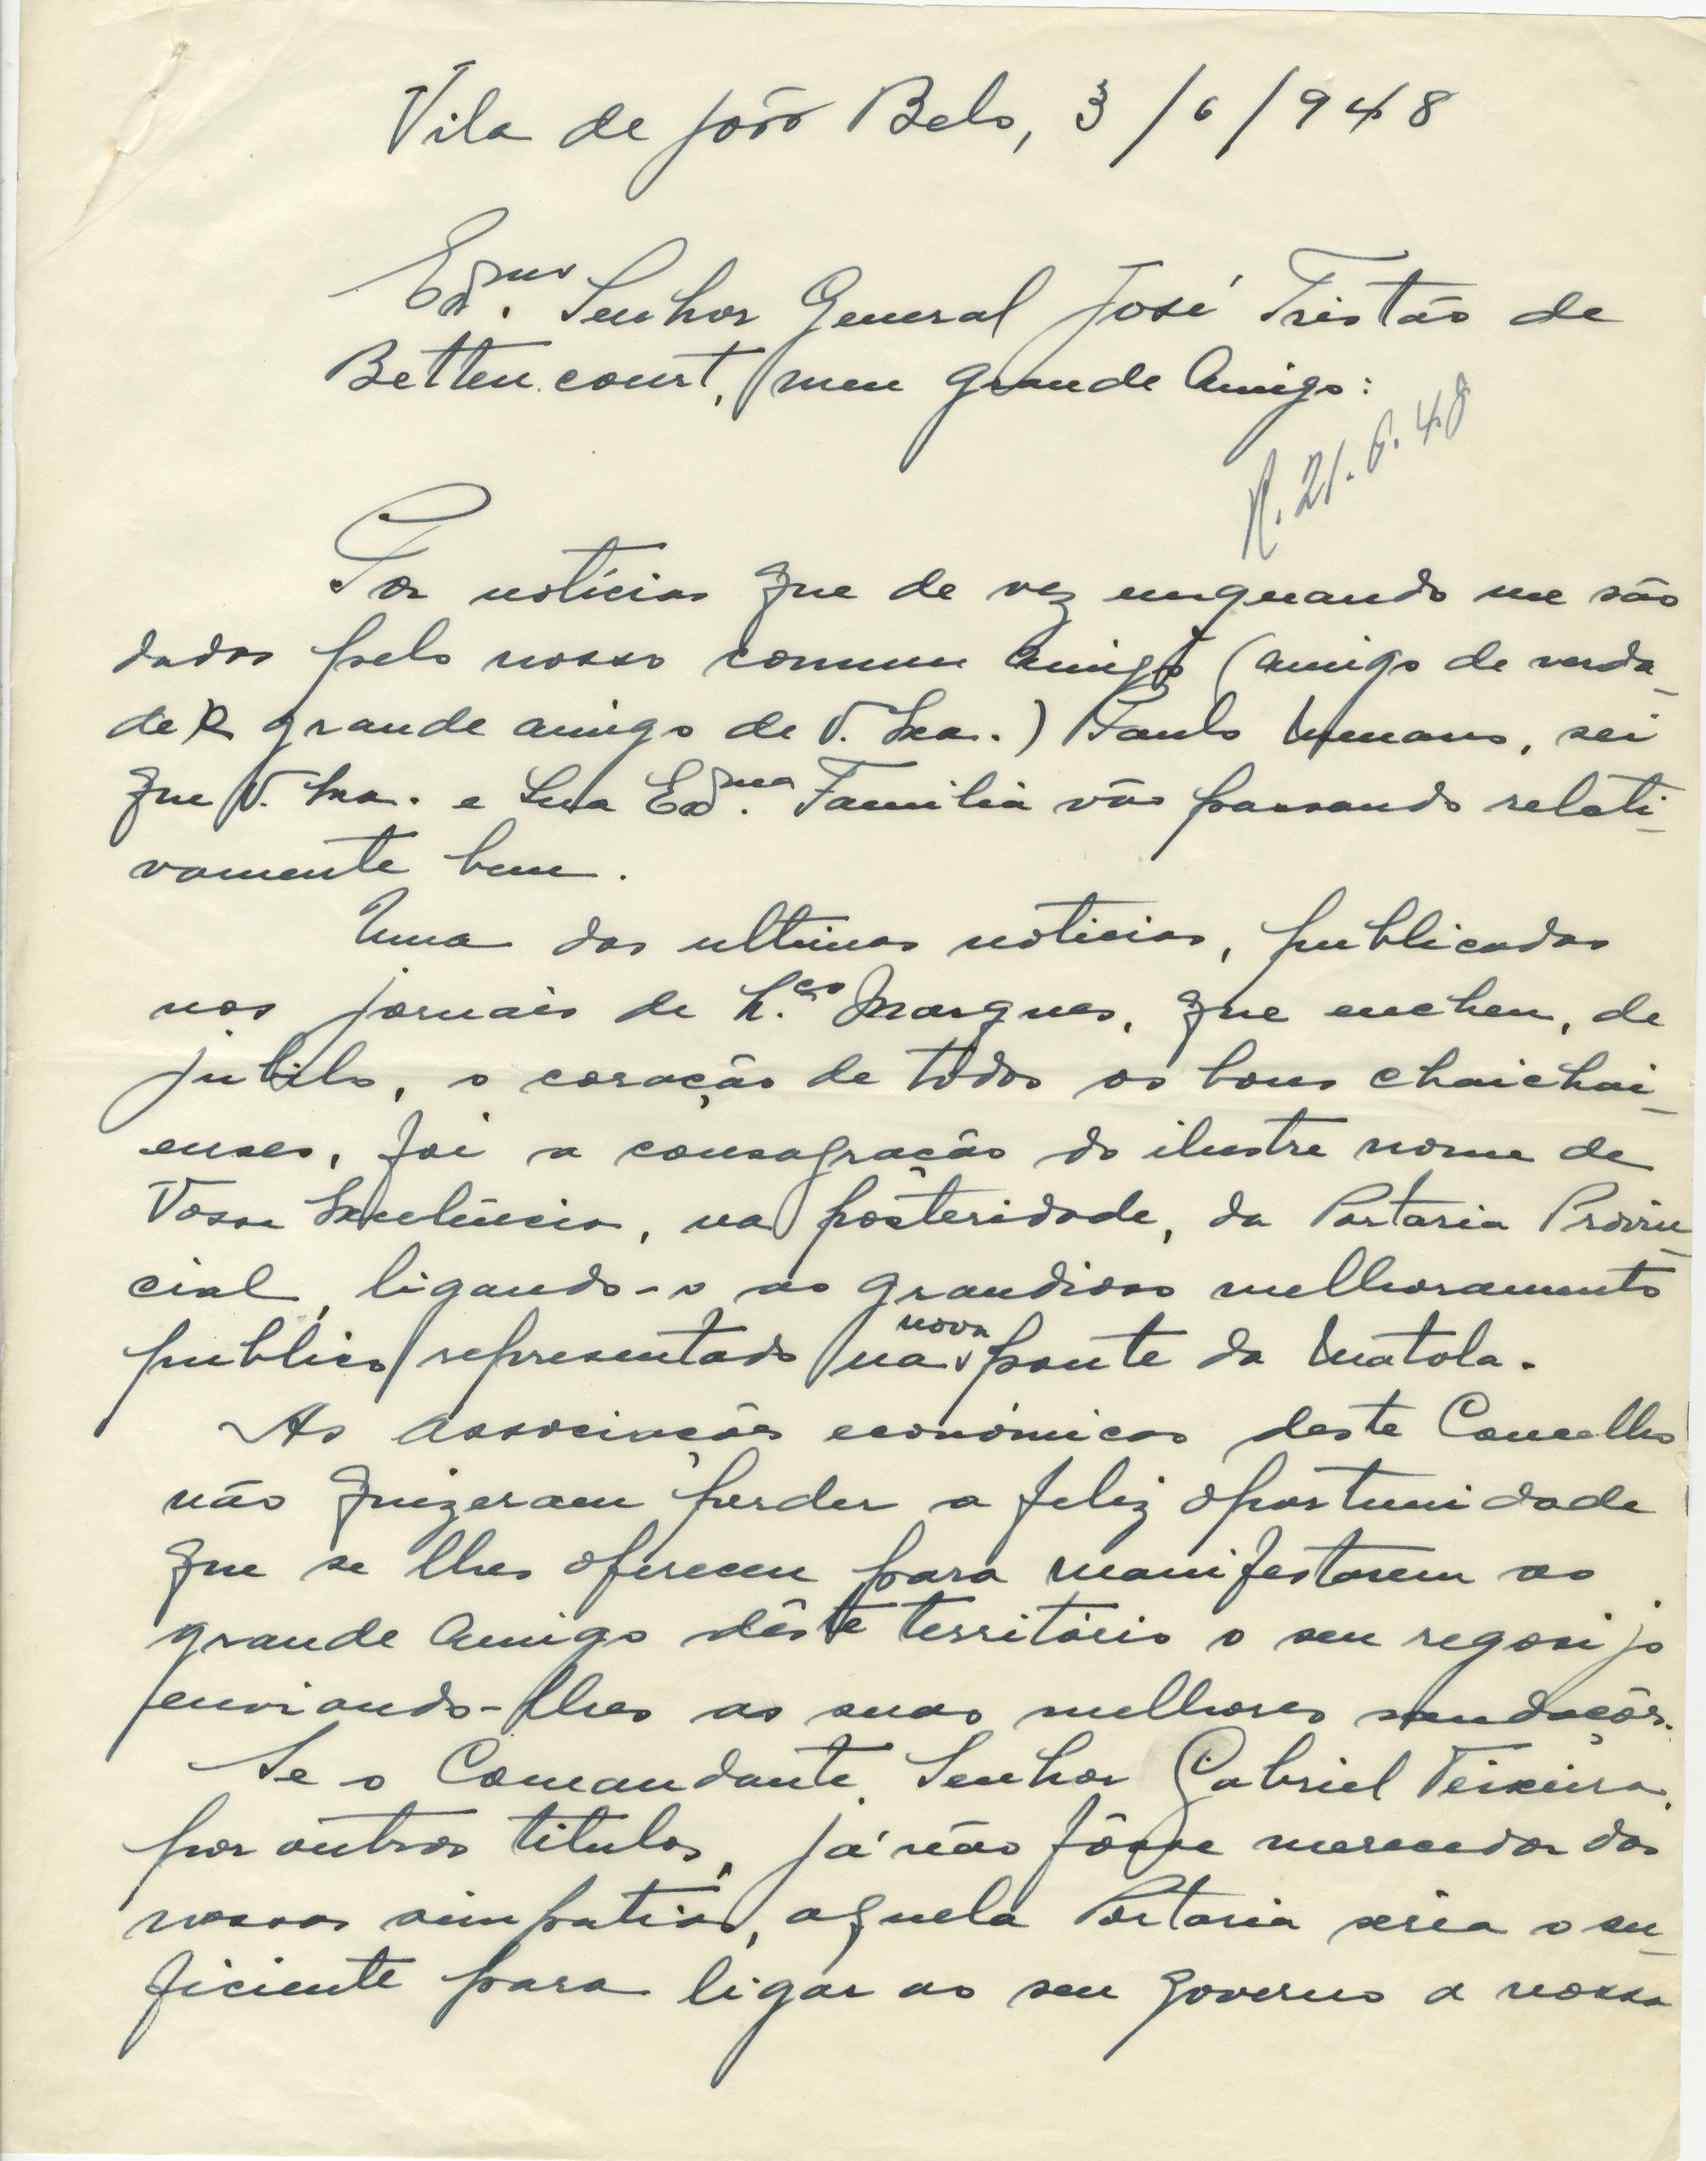 Vila de João Belo, 3/6/948
Exmo. Senhor General José Tristão de
Bettencourt, meu grande Amigo:
R. 21.6.48
Por notícias que de vez enquando me são
dadas pelo nosso comum Amigo (amigo de verda-
de e grande amigo de V. Exa.) Paulo, sei
que V. Exa. e Sua Exma. Familia vão passando relati-
vamente bem.
Uma das ultimas noticias, publicadas
nos jornais de L.ço Marques, que enchem, de
jubilo, o coração de todos os bons chaichai-
enses, foi a consagração do ilustre nome de
Vossa Excelência, na posteridade, da Portaria Provin-
cial, ligando-o ao grandioso melhoramento
publico representado na nova ponte da Matola.
As associações económicas deste Concelho
não quizeram perder a feliz oportunidade
que se lhes ofereceu para manifestarem ao
grande Amigo dêste território o seu regosijo
enviando-lhes as suas melhores saudações.
Se o Comandante, Senhor Gabriel Teixeira,
por outros titulos, já não fôsse merecedor das
nossas simpatias, aquela Portaria seria o su-
ficiente para ligar ao seu governo a nossa